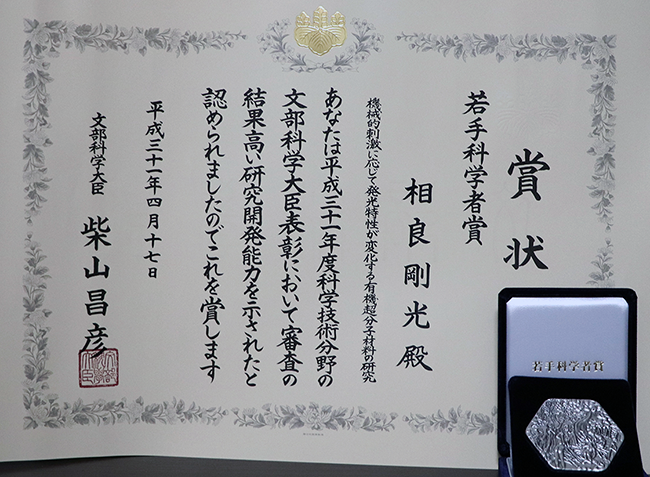 賞状
若手科学者賞
相良剛光殿
機械的刺激に応じて発光特性が変化する有機超分子材料の研究
あなたは平成三十一年度科学技術分野の
文部科学大臣表彰において審査の
結果高い研究開発能力を示されたと
認められましたのでこれを賞します
平成三十一年四月十七日
文部科学大臣 柴山昌彦
若手科学者賞